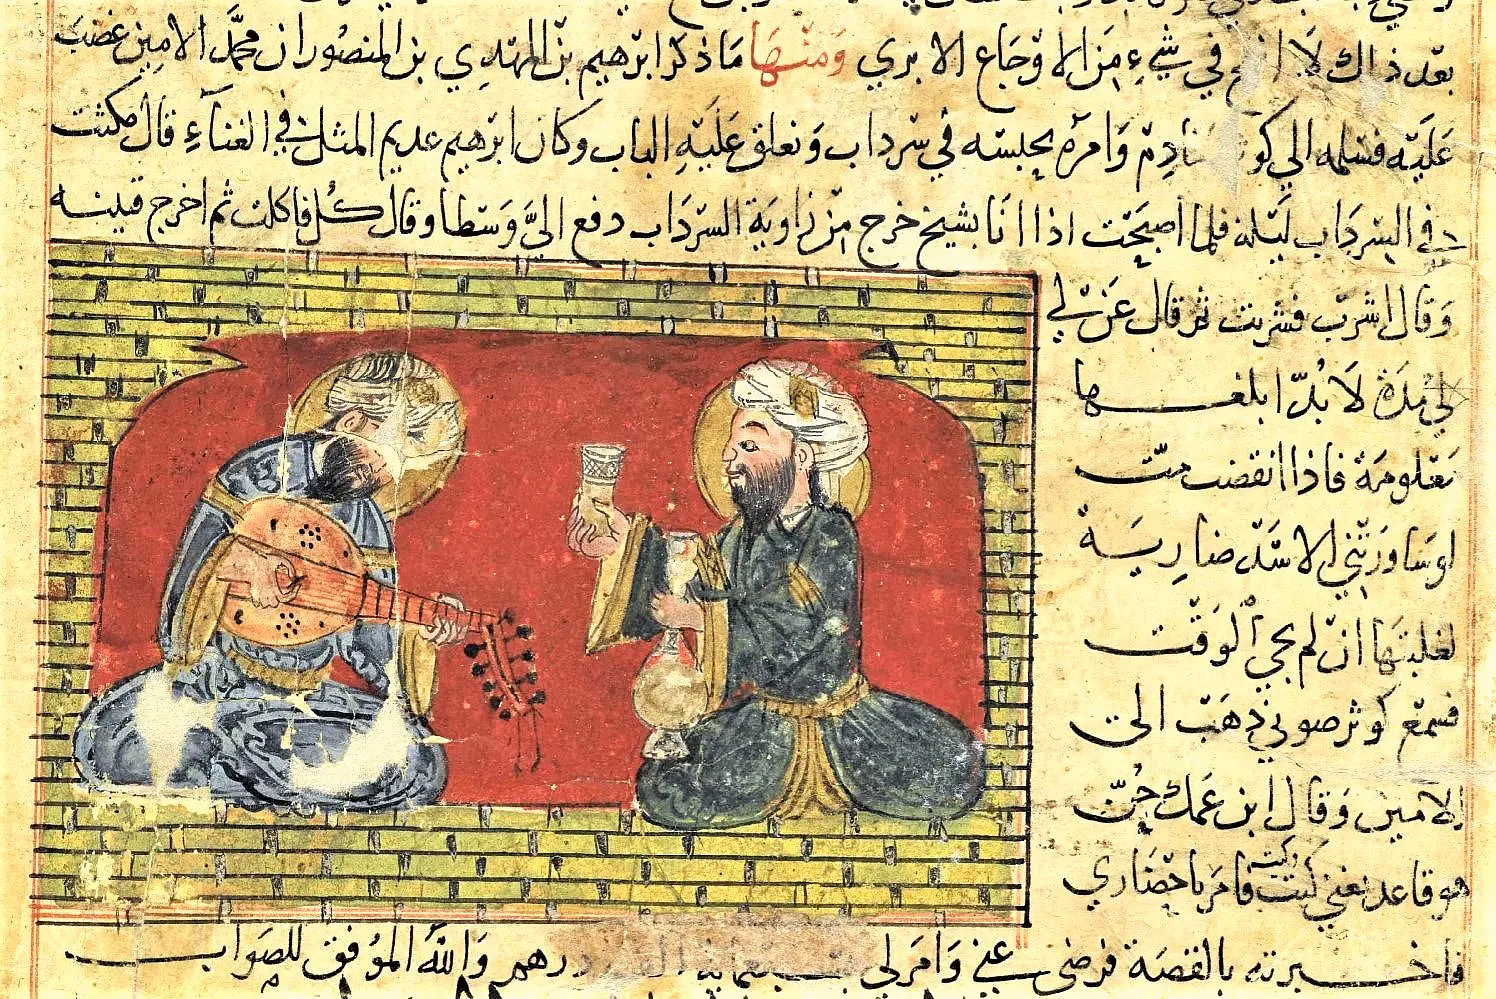 بعد ذاك لا في شيء من الاوجاع الا بري ومنها ما ذكر ابرهيم بن المهدي بن المنصور ان محمد الامين غضب
عليه فسلمه الي كوثر خادم وامره بحبسه في سرداب ونغلق عليه الباب وكان ابرهيم عديم المثل في الغناء قال مكثت
في السرداب ليلة فلما اصبحت اذا انا بشيخ خرج من زاوية السرداب دفع الي وسطا وقال كل فاكلت ثم اخرج قنينه
وقال اشرب فشربت ثم قال غن لي
لي مدة لا بد ابلغها
معلومة فاذا انقضت مت
لو ساورتني الاسد ضارية
لغلبتها ان لم يجي الوقت
فسمع كوثر صوتي ذهب الى
الامين وقال ابن عمك جن
هو قاعد يغني كيت وكيت فامر باحضاري
فاخبرته بالقصة فرضى عني وامر لي درهم والله الموفق للصواب